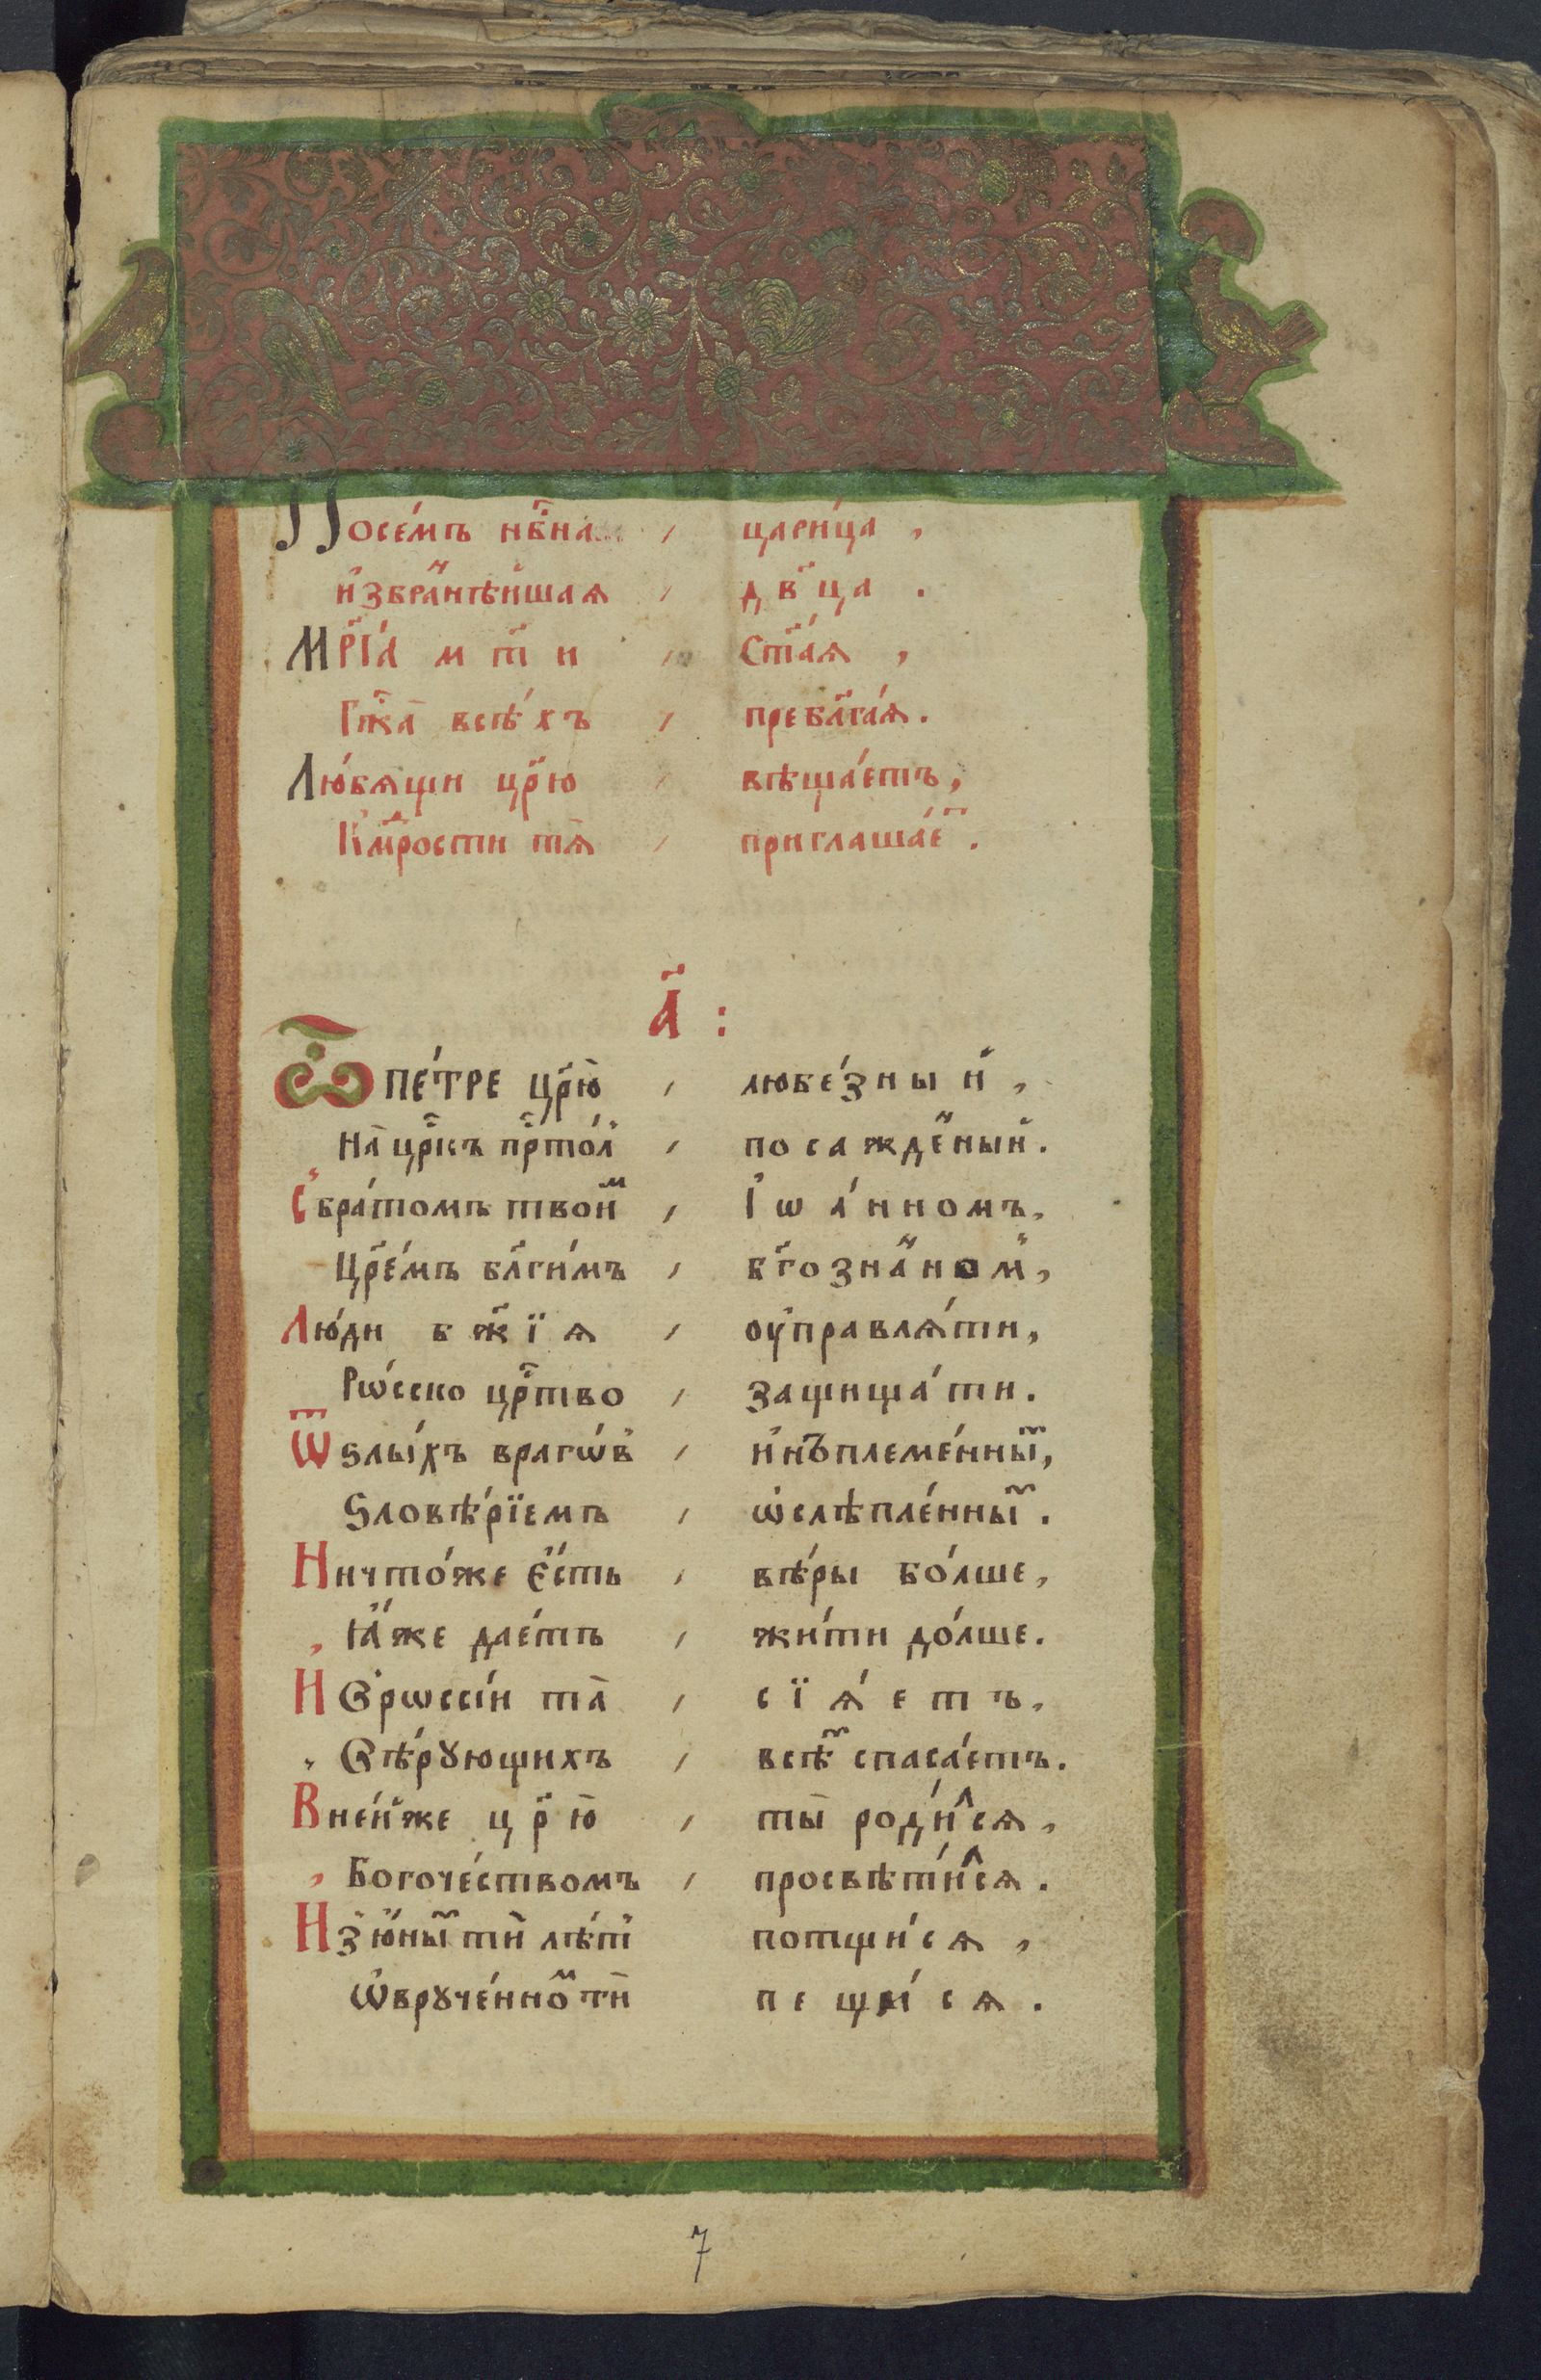 Посе́мъ нб҃на , цари́ца ,
и҆збра́нⷩ҇ѣйшая , дв҃ца .
Мр҃і́а мт҃и , ст҃а́ѧ ,
Гжⷭ҇а̀ всѣ́хъ , пребл҃га́ѧ .
Лю́бѧщи цр҃ю , вѣща́етъ ,
Кмⷣ҇рости тѧ̀ , приглаша́еⷮ .
а҃ :
Ѽ пе́тре цр҃ю̀ , любе́зный ,
на̀ црⷭ҇къ прⷭ҇то́лъ , посажде́ⷩный .
С̾бра́томъ твоиⷨ , і҆ѡа́нномъ ,
Цр҃е́мъ бл҃ги́мъ , бг҃озна́ⷩном̾ ,
Лю́ди бж҃їѧ , ᲂу҆правлѧ́ти ,
Рѡ́сско црⷭ҇тво , защища́ти .
Ѿ ѕлы́хъ врагѡ́в̾ , и҆нъплеме́нныⷯ ,
Ѕловѣ́рїемъ , ѡ҆слѣпле́нныⷯ .
Ничто́же є҆́сть , вѣ́ры бо́лше ,
Ꙗ҆́же дае́тъ , жи́ти до́лше .
И҆ в̾рѡссі́и та̀ , сїѧ́етъ ,
Вѣ́рꙋющихъ , всѣⷯ спаса́етъ .
В не́йже цр҃ю̀ , ты̀ роди́ⷧсѧ ,
Богоче́ствомъ , просвѣти́ⷧсѧ .
Из̾ ю҆́ныⷯ ти̑ лѣ́т̾ потщи́сѧ ,
Ѡ҆врꙋче́нноⷨ ти̑ пещи́сѧ .
7